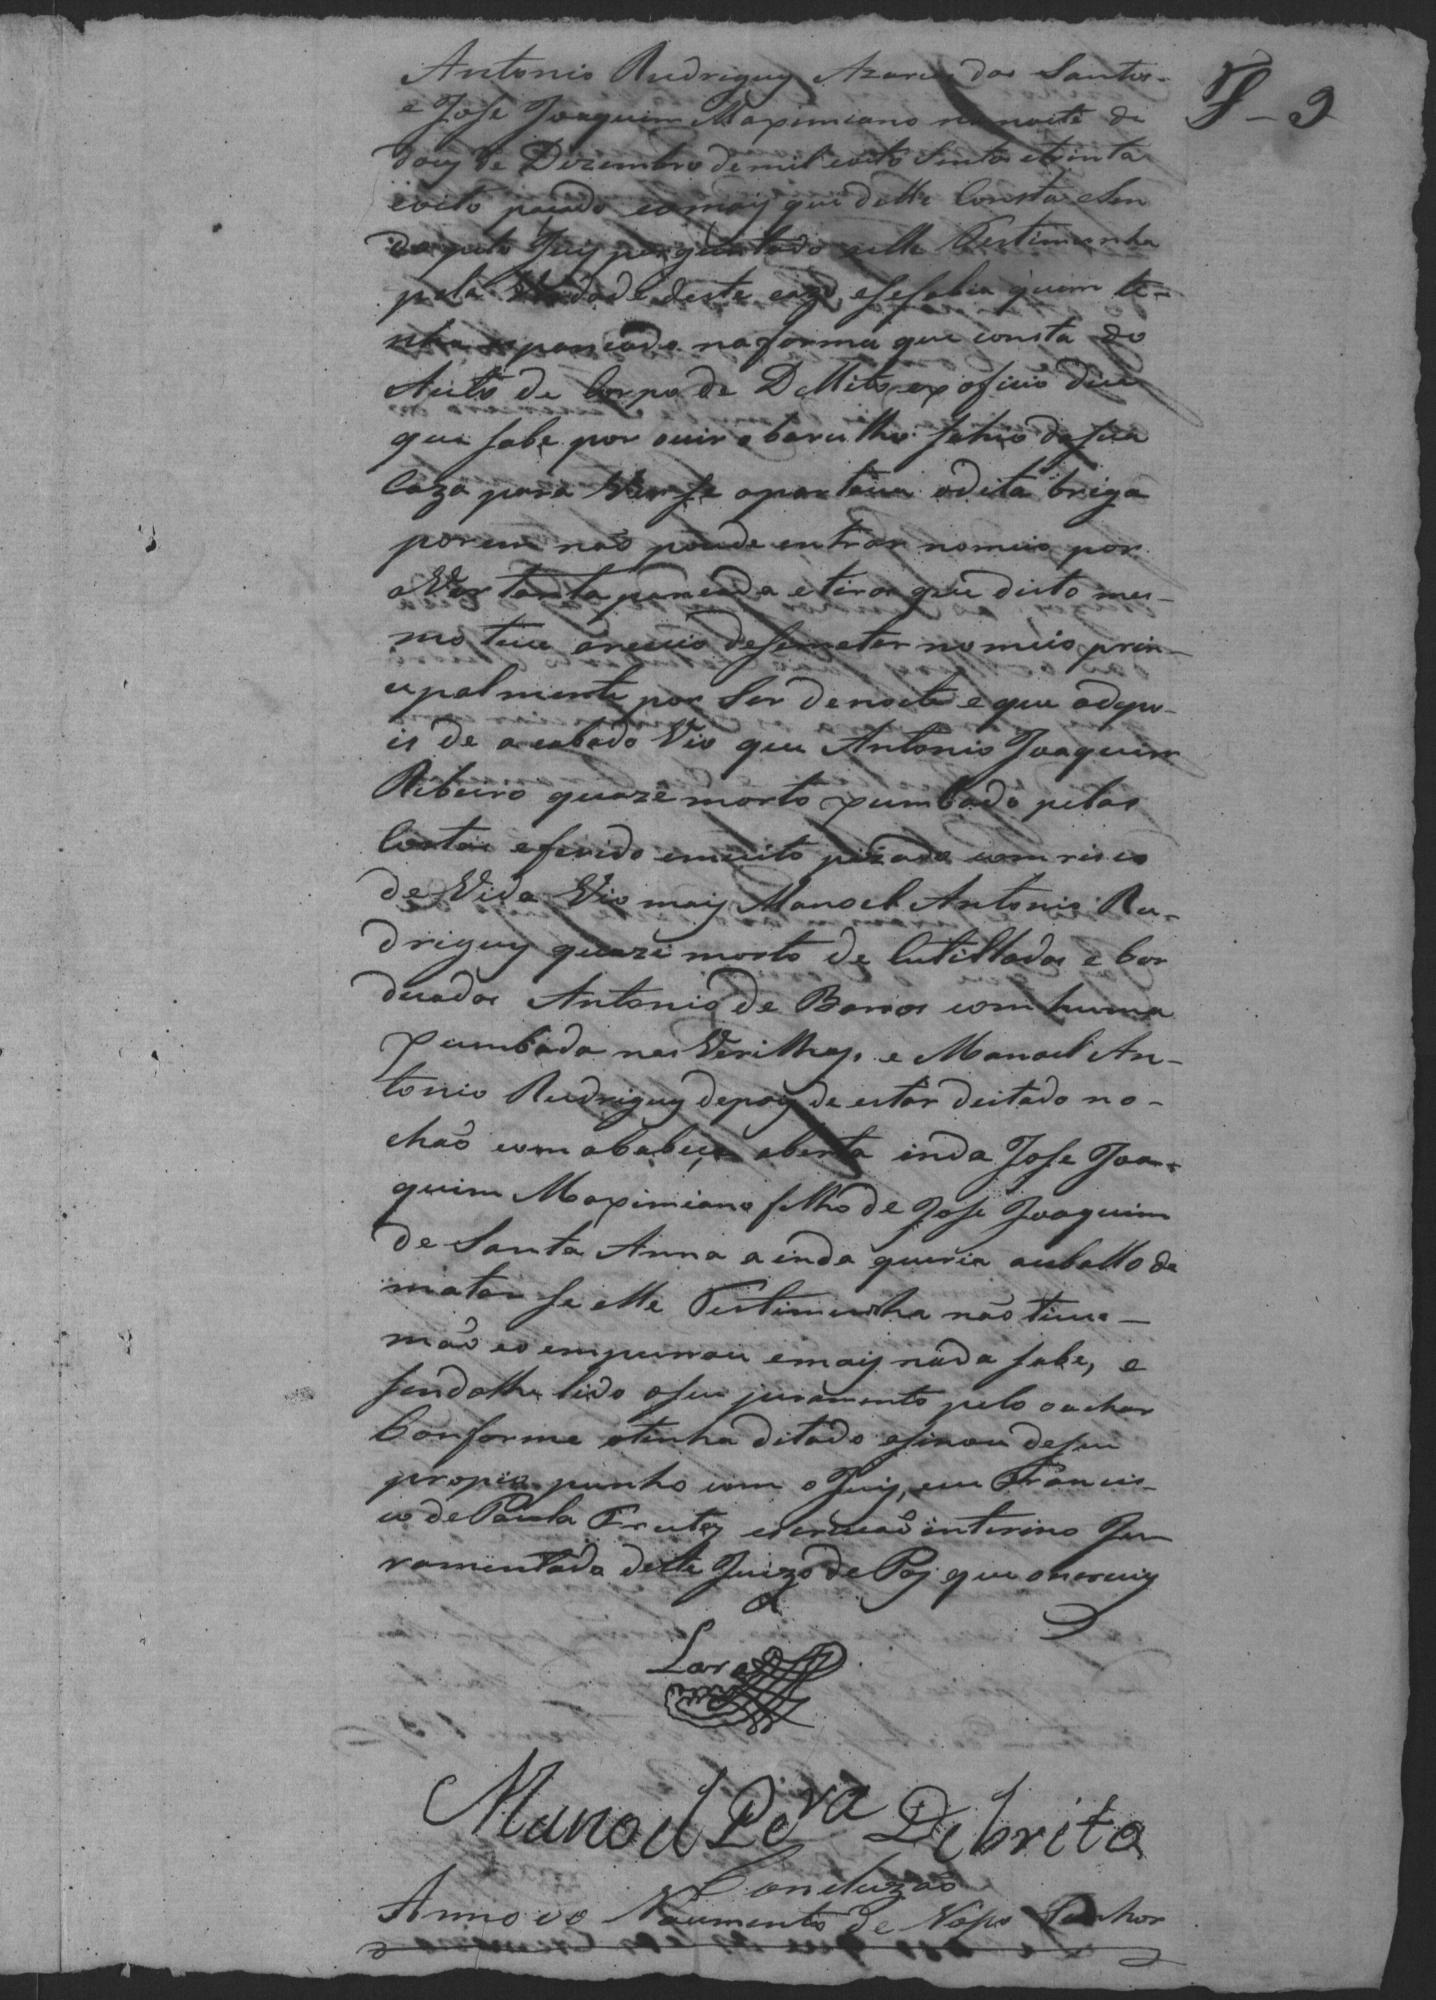 F - 9
Antonio Rudriguy Azarias dos Santos
e Jose Joaquim Maximiano na noite de
douy de Dizembro de mil oito Sentos e trinta
eoito pasado eomaiy que delle Consta e Sen
do pelo Juiy perguntado a elle Testimunha
pela Verdade deste cazo, e se sabia quem te-
nha espancado na forma que consta do
Auto de Corpo de Dellito ex oficio dice
que sabe por ouvir o barulho sahio da sua
Caza para Ver se apartava adita briga
porem não poude entrar no meio por
aVer tanta pancada e tiros que disto mes-
mo teve óreceio de se meter no meio prin-
cipalmente por Ser de noite e que adepo-
is de acabado Vio que Antonio Joaquim
Ribeiro quaze morto xumbado pelas
Costas eferido emuito pizado com risco
de Vida Vio maiy Manoel Antonio Ru-
driguy quaze morto de Cutilladas e bor
duadas Antonio de Barros com huma
xumbada nas Verilhas, e Manoel An-
tonio Rudriguy depoiy de estar deitado no-
chão com aCabeça aberta inda Jose Joa-
quim Maximiano filho de Jose Joaquim
de Santa Anna a inda queria acaballo de
matar se elle Testimunha não tive-
mão eo empurrou emaiy náda sabe, e
sendolhe lido oseu juramento pelo o achar
Conforme otinha ditado asinou deseu
propio punho com o Juiy, eu Francis-
co de Paula Frutoy escrivaõ interino Ju-
ramentado deste Juizo de Paj que o escrivy
Lara
Manoel Pera Debrito
Concluzaõ
Anno do Nacimento de Nosso Senhor